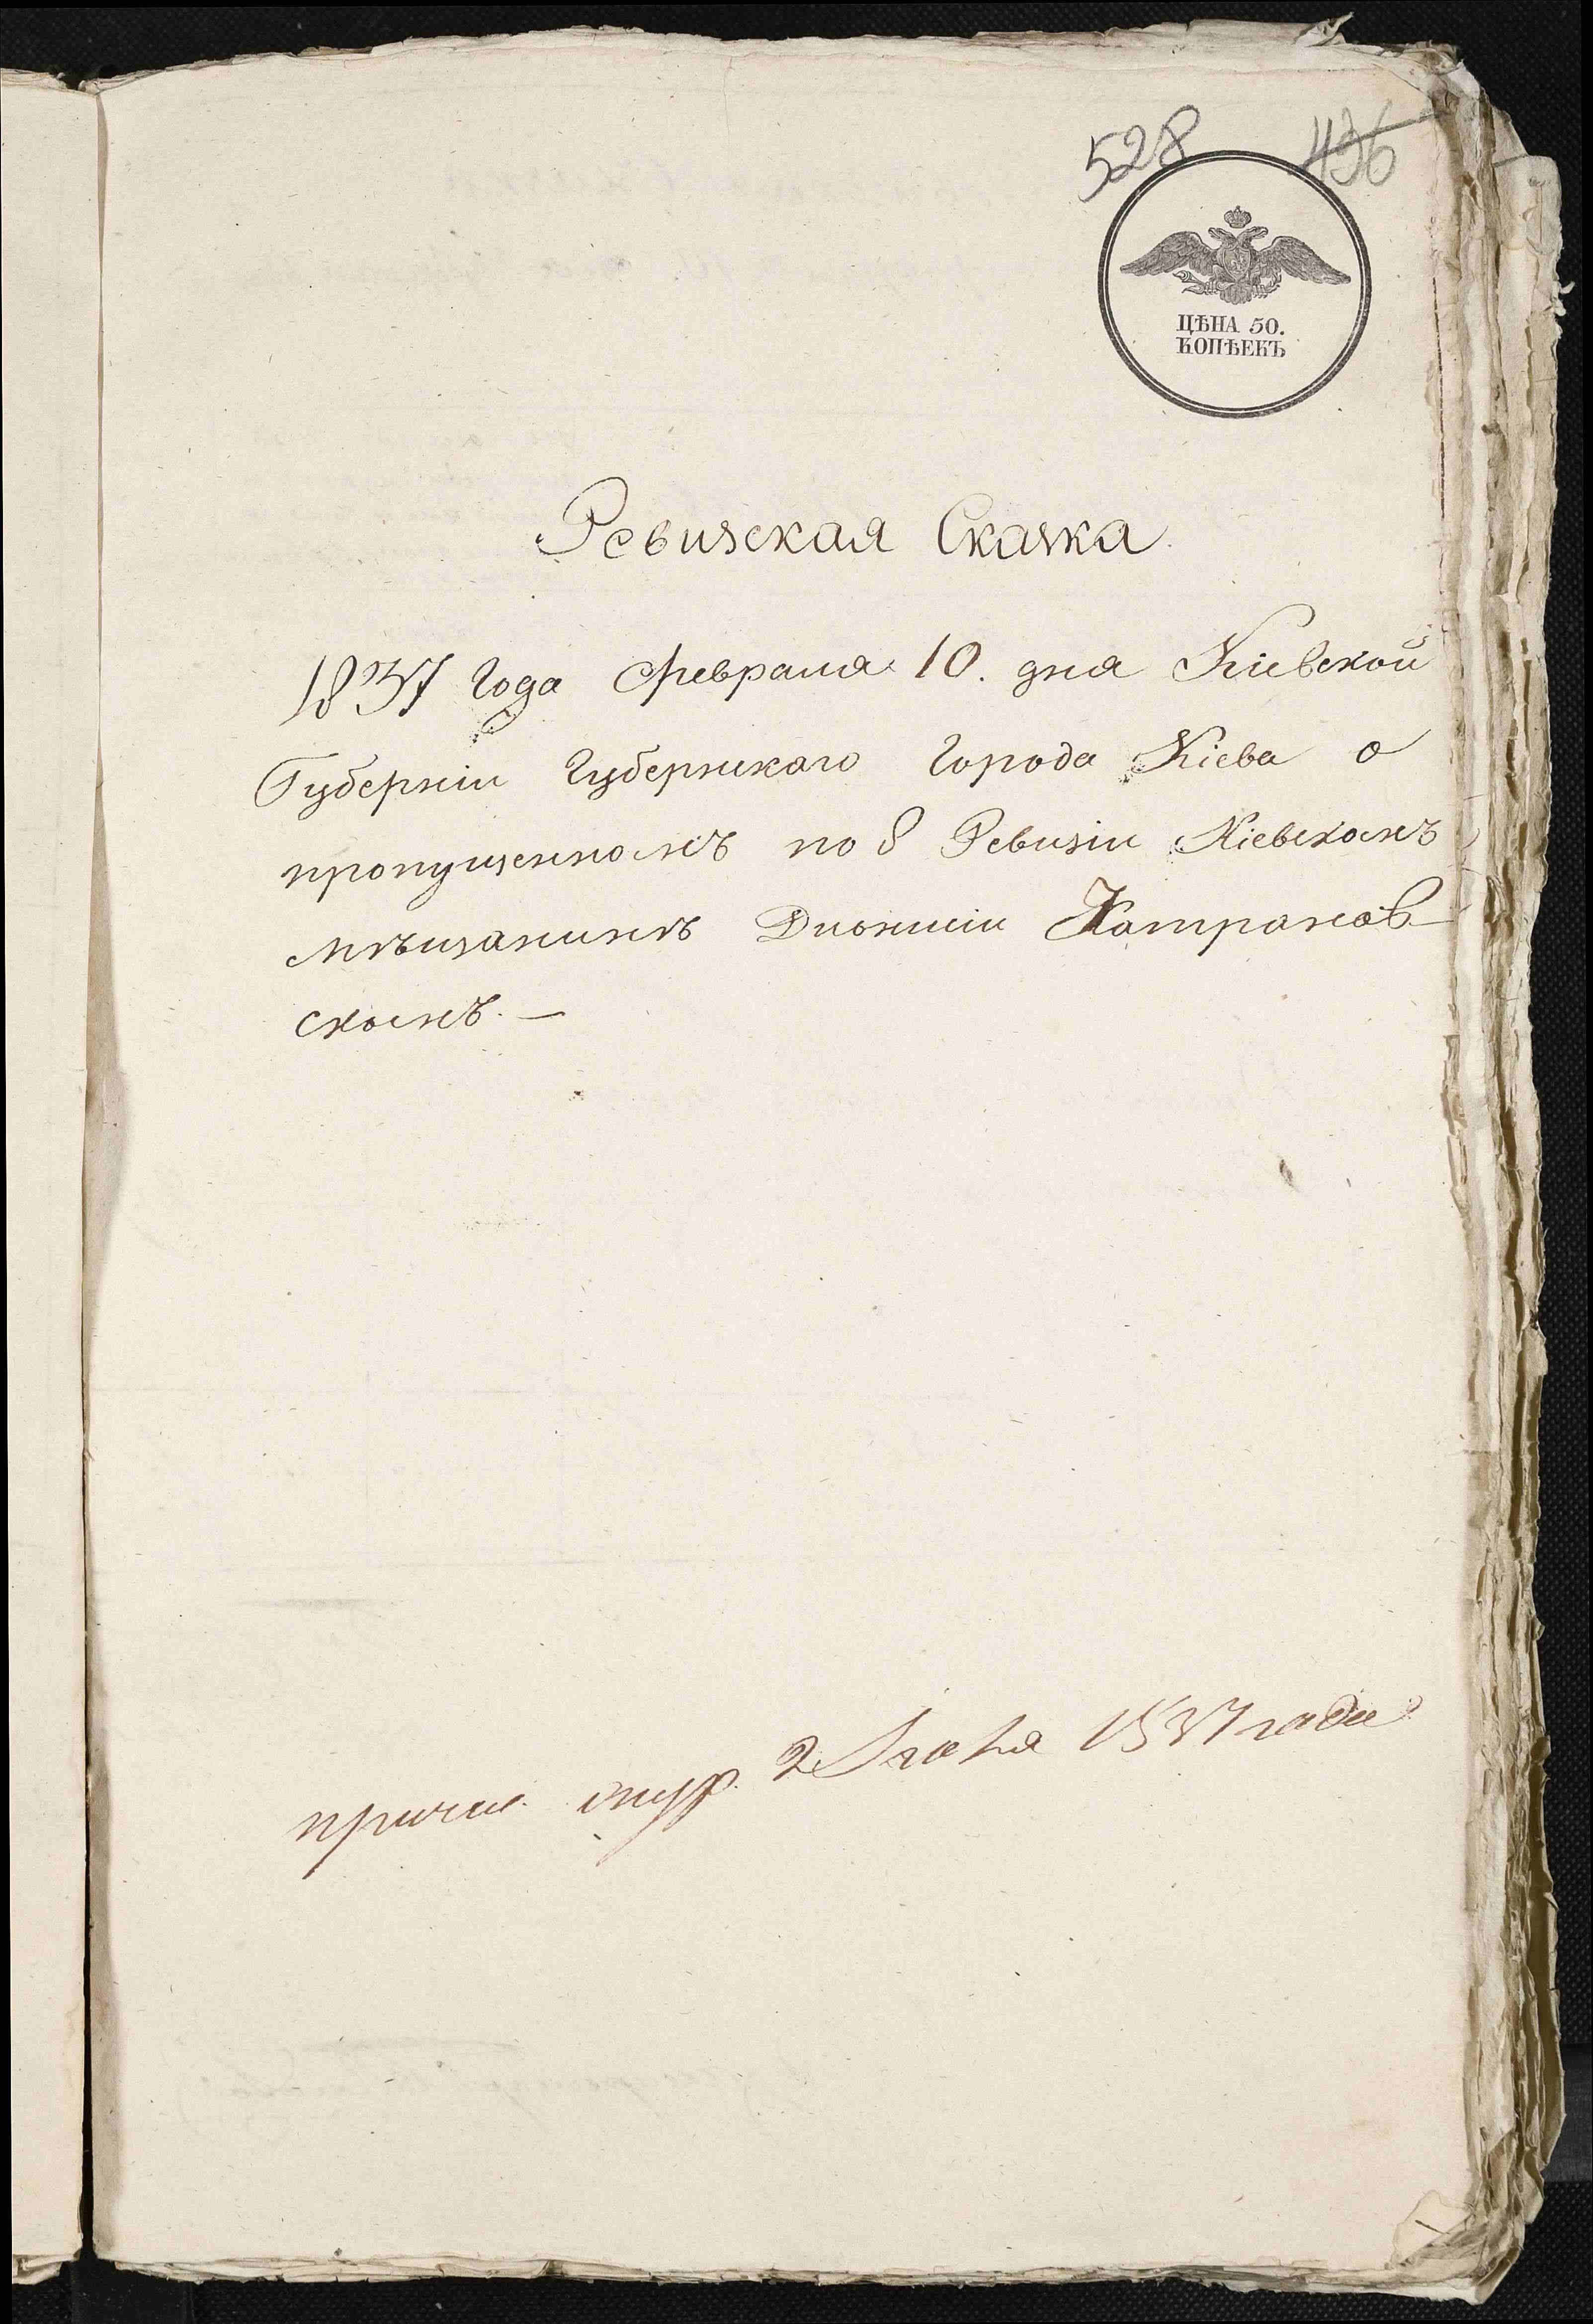 528 496
ЦѢНА 50.
КОПѢЕКЪ
Ревизская Сказка
1837 Года Февраля 10. дня Кіевской
Губерніи Губернскаго Города Кіева о
пропущенномъ по 8 Ревизіи Кіевскомъ
мѣщанинѣ Діонисіи Катранов-
скомъ. —
2 Іюня 1837 года